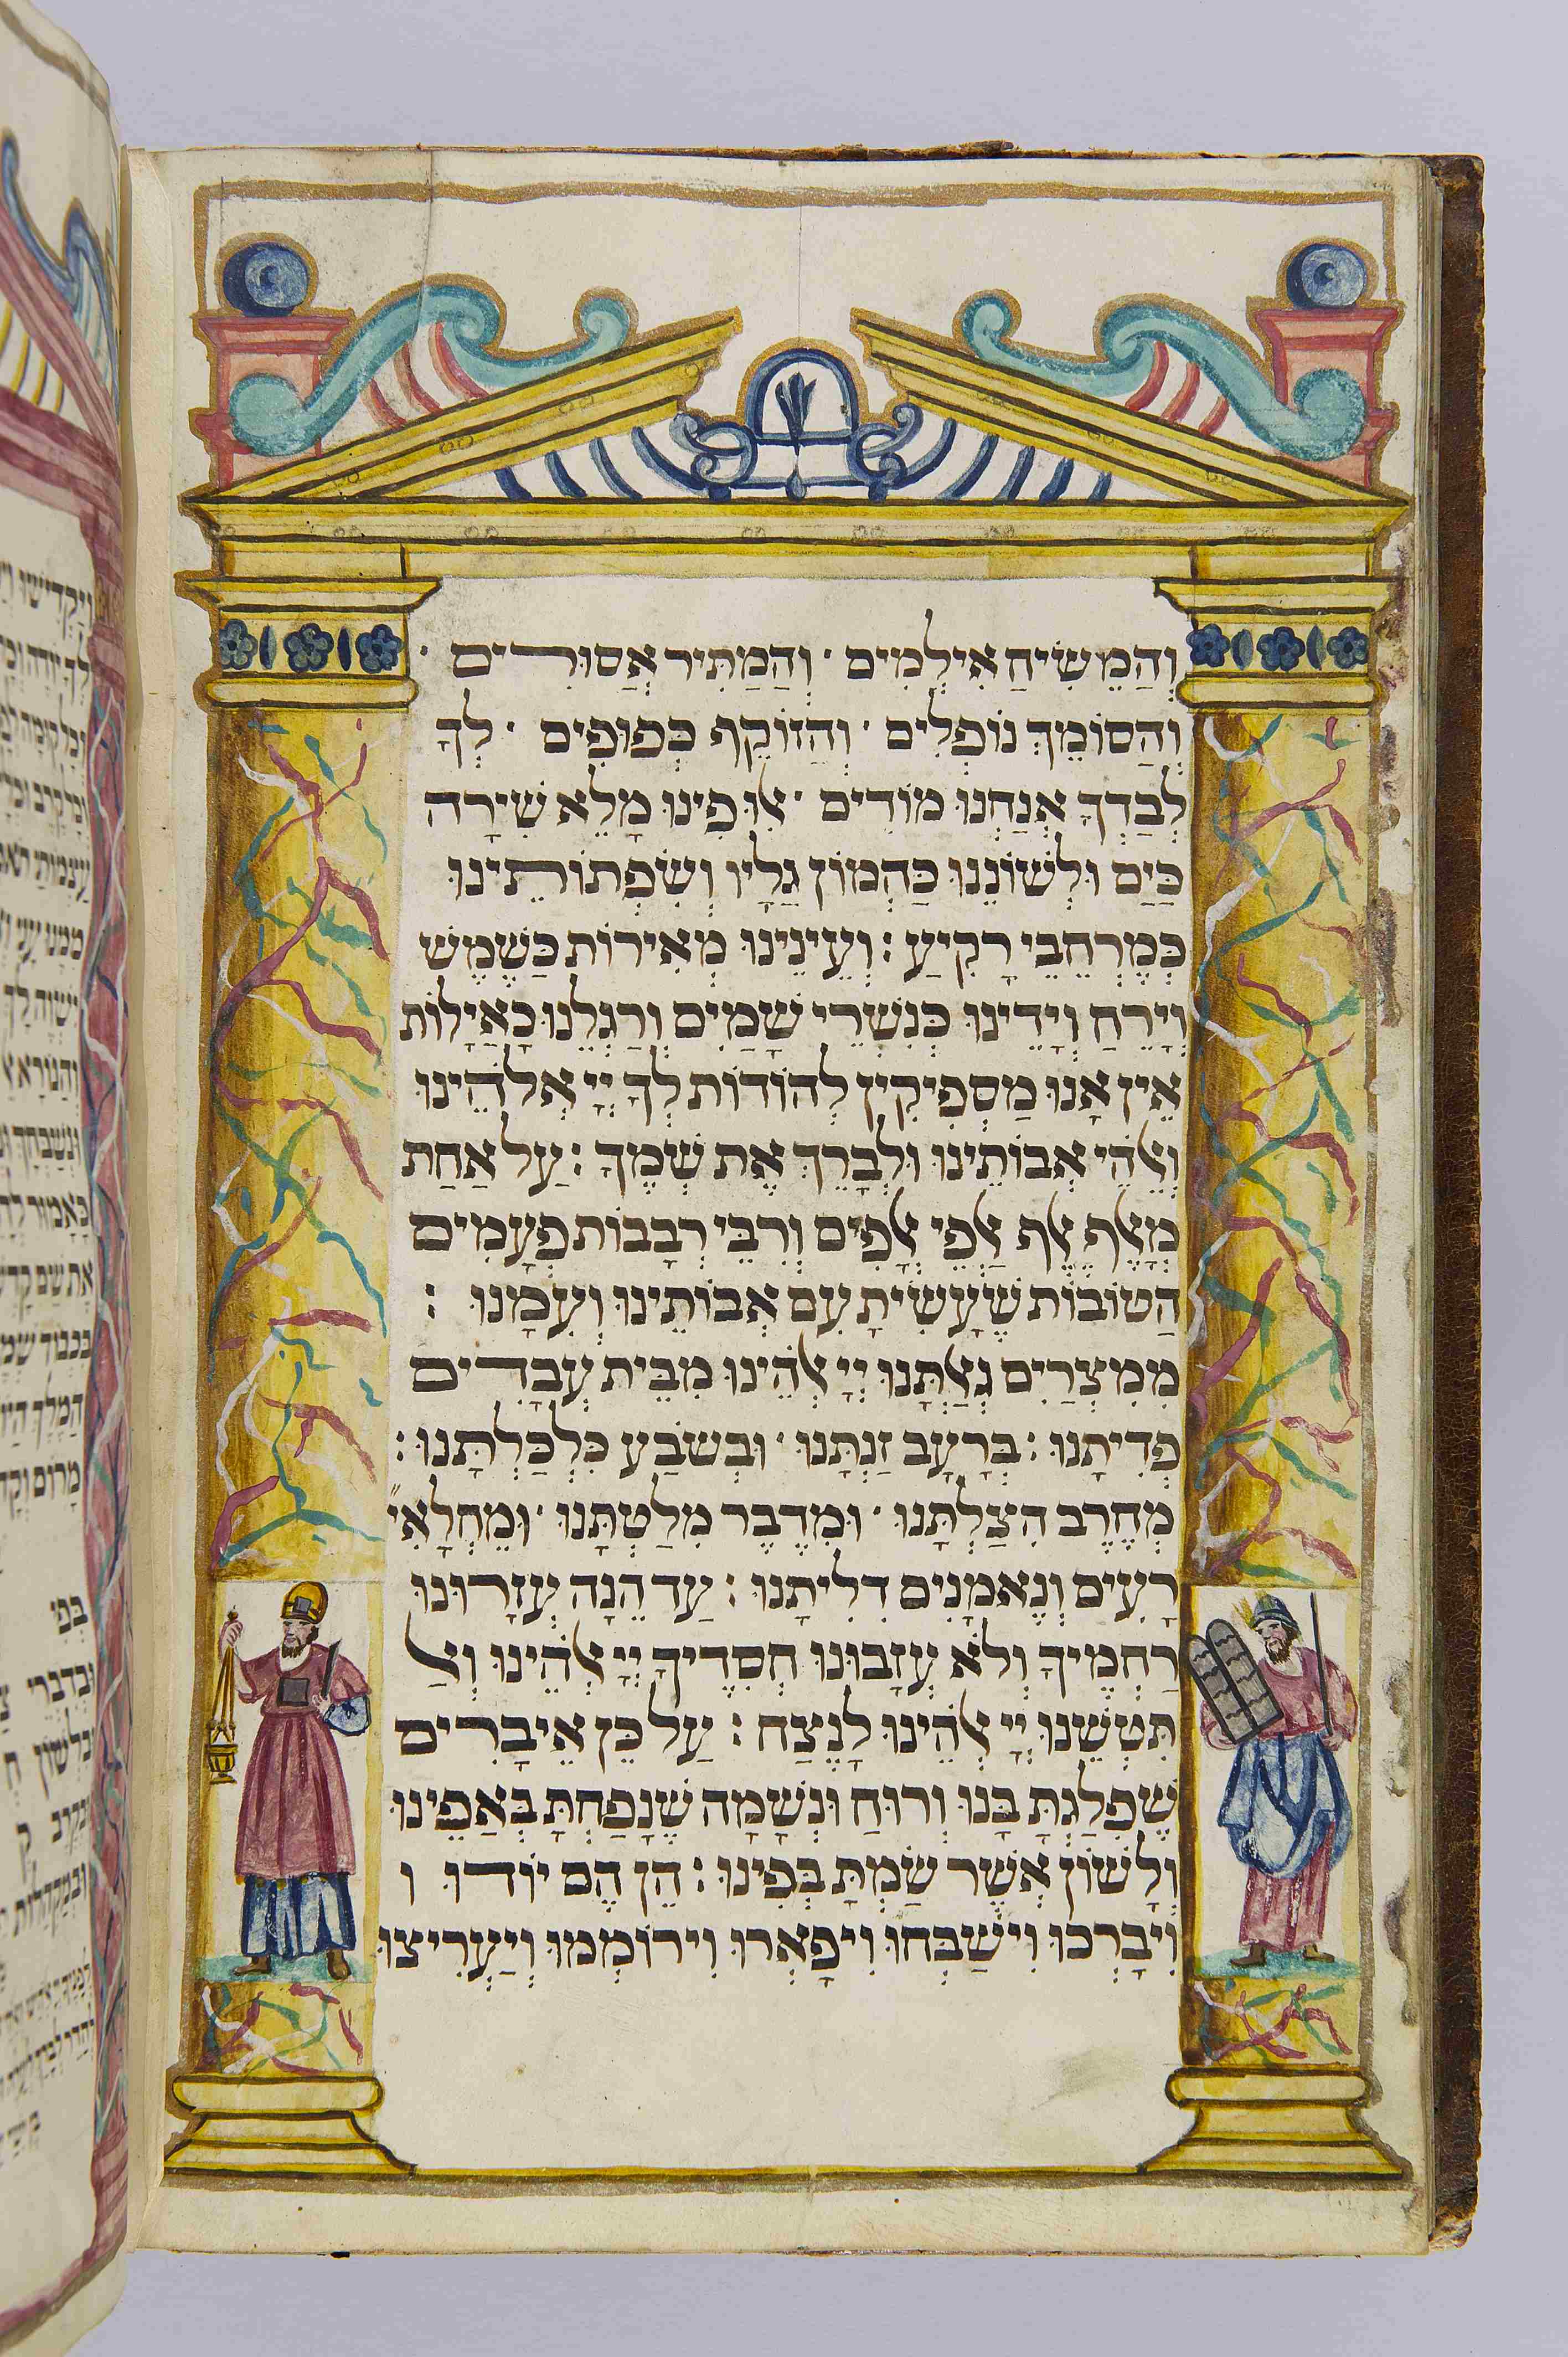 וְהַמֵשִׂיחַ אִילְמִים · וְהַמַתִּיר אֲסוּרִים ·
וְהַסוֹמֵךְ נוֹפְלִים · וְהַזוֹקֵף כְּפוּפִים · לְךָ
לְבַדְךָ אֲנַחְנוּ מוֹדִים · אִלוּ פִינוּ מָלֵא שִׁירָה
כַּיַם וּלְשׁוֹנֵנוּ כַּהְמוֹן גַלָיו וְשִׂפְתוֹתֵינוּ
כְּמֶרְחֵבֵי רָקִיעַ : וְעֵינֵינוּ מְאִירוֹת כַּשֶׁמֶשׁ
וְיָרֵחַ וְיָדֵינוּ כְּנִשְׁרֵי שָׁמַיִם וְרַגְלֵנוּ כָאַיָלוֹת
אֵין אָנוּ מַסְפִּיקִין לְהוֹדוֹת לְךָ יְיָ אֱלֹהֵינוּ
וֵאלֹהֵי אֲבוֹתֵינוּ וּלְבָרֵךְ אֶת שְׁמֶךָ : עַל אַחַת
מֵאֶלֶף אֶלֶף אַלְפֵי אֲלָפִים וְרִבֵּי רְבָבוֹת פְּעָמִים
הַטוֹבוֹת שֶׁעָשִׂיתָ עִם אֲבוֹתֵינוּ וְעִמָנוּ :
מִמִצְרַיִם גְאַלְתָּנוּ יְיָ אֱלֹהֵינוּ מִבֵּית עֲבָדִים
פְּדִיתָנוּ : בְּרָעָב זַנְתָּנוּ · וּבְשֹבַע כִּלְכַּלְתָּנוּ :
מֵחֶרֶב הִצַלְתָּנוּ · וּמִדֶבֶר מִלַטְתָּנוּ · וּמֵחְלָאִי״
רָעִים וְנֶאֱמָנִים דִלִיתָנוּ : עַד הֵנָה עֲזָרוּנוּ
רַחֲמֶיךָ וְלֹא עֲזָבוּנוּ חֲסָדֶיךָ יְיָ אֱלֹהֵינוּ וְאַל
תִּטְשֵׁנוּ יְיָ אֱלֹהֵינוּ לָנֶצַח : עַל כֵּן אֵיבָרִים
שֶׁפִּלַגְתָּ בָּנוּ וְרוּחַ וּנְשָׁמָה שֶׁנָפַחְתָּ בְּאַפֵּינוּ
וְלָשׁוֹן אֲשֶׁר שַׂמְתָּ בְּפִינוּ : הֵן הֵם יוֹדוּ ו
וִיבָרְכוּ וִישַׁבְּחוּ וִיפָאֲרוּ וִירוֹמְמוּ וְיַעֲרִיצוּ